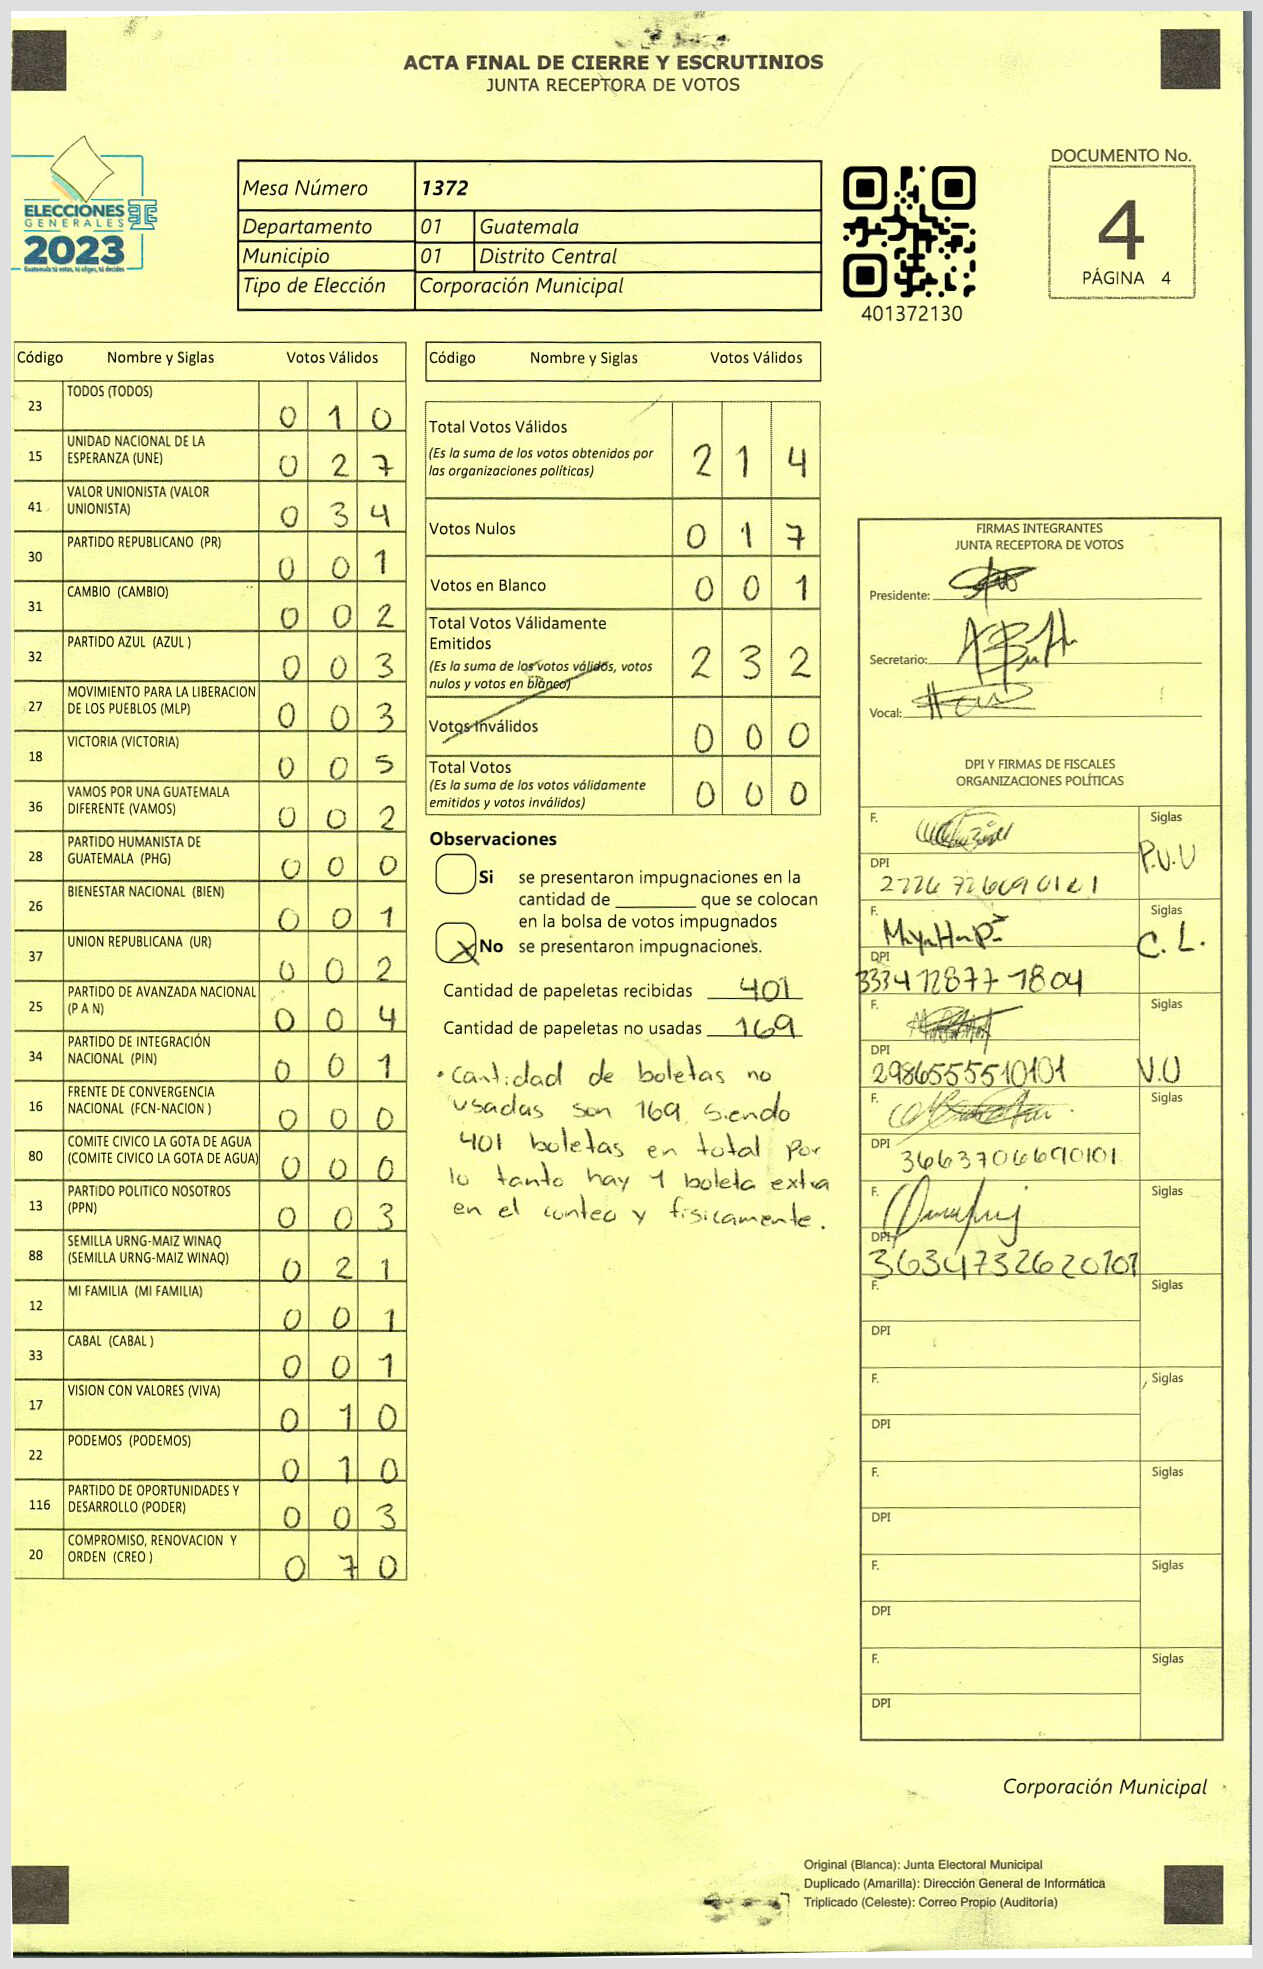 ACTA FINAL DE CIERRE Y ESCRUTINIOS
JUNTA RECEPTORA DE VOTOS
ELECCIONES
GENERALES
2023
Guatemala tú votas, tú eliges, tú decides
Mesa Número 1372
Departamento 01 Guatemala
Municipio 01 Distrito Central
Tipo de Elección Corporación Municipal
401372130
DOCUMENTO No.
4
PÁGINA 4
Código Nombre y Siglas Votos Válidos
23 TODOS (TODOS) 0 1 0
15 UNIDAD NACIONAL DE LA ESPERANZA (UNE) 0 2 7
41 VALOR UNIONISTA (VALOR UNIONISTA) 0 3 4
30 PARTIDO REPUBLICANO (PR) 0 0 1
31 CAMBIO (CAMBIO) 0 0 2
32 PARTIDO AZUL (AZUL ) 0 0 3
27 MOVIMIENTO PARA LA LIBERACION DE LOS PUEBLOS (MLP) 0 0 3
18 VICTORIA (VICTORIA) 0 0 5
36 VAMOS POR UNA GUATEMALA DIFERENTE (VAMOS) 0 0 2
28 PARTIDO HUMANISTA DE GUATEMALA (PHG) 0 0 0
26 BIENESTAR NACIONAL (BIEN) 0 0 1
37 UNION REPUBLICANA (UR) 0 0 2
25 PARTIDO DE AVANZADA NACIONAL (P A N) 0 0 4
34 PARTIDO DE INTEGRACIÓN NACIONAL (PIN) 0 0 1
16 FRENTE DE CONVERGENCIA NACIONAL (FCN-NACION ) 0 0 0
80 COMITE CIVICO LA GOTA DE AGUA (COMITE CIVICO LA GOTA DE AGUA) 0 0 0
13 PARTIDO POLITICO NOSOTROS (PPN) 0 0 3
88 SEMILLA URNG-MAIZ WINAQ (SEMILLA URNG-MAIZ WINAQ) 0 2 1
12 MI FAMILIA (MI FAMILIA) 0 0 1
33 CABAL (CABAL ) 0 0 1
17 VISION CON VALORES (VIVA) 0 1 0
22 PODEMOS (PODEMOS) 0 1 0
116 PARTIDO DE OPORTUNIDADES Y DESARROLLO (PODER) 0 0 3
20 COMPROMISO, RENOVACION Y ORDEN (CREO ) 0 7 0
Código Nombre y Siglas Votos Válidos
Total Votos Válidos 2 1 4
(Es la suma de los votos obtenidos por
las organizaciones políticas)
Votos Nulos 0 1 7
Votos en Blanco 0 0 1
Total Votos Válidamente
Emitidos 2 3 2
(Es la suma de los votos válidos, votos
nulos y votos en blanco)
Votos Inválidos 0 0 0
Total Votos 0 0 0
(Es la suma de los votos válidamente
emitidos y votos inválidos)
Observaciones
Si se presentaron impugnaciones en la
cantidad de ________ que se colocan
en la bolsa de votos impugnados
X No se presentaron impugnaciones.
Cantidad de papeletas recibidas 401
Cantidad de papeletas no usadas 169
• Cantidad de boletas no
usadas son 169 siendo
401 boletas en total por
lo tanto hay 1 boleta extra
en el conteo y fisicamente.
FIRMAS INTEGRANTES
JUNTA RECEPTORA DE VOTOS
Presidente:
Secretario:
Vocal:
DPI Y FIRMAS DE FISCALES
ORGANIZACIONES POLÍTICAS
F. Siglas P.V.U
DPI
F. Siglas C.L.
DPI 3334128771804
F. Siglas V.U
DPI 2986555510101
F. Siglas
DPI 3663706690101
F. Siglas
DPI 3634732620101
F. Siglas
DPI
F. Siglas
DPI
F. Siglas
DPI
F. Siglas
DPI
F. Siglas
DPI
Corporación Municipal
Original (Blanca): Junta Electoral Municipal
Duplicado (Amarilla): Dirección General de Informática
Triplicado (Celeste): Correo Propio (Auditoría)